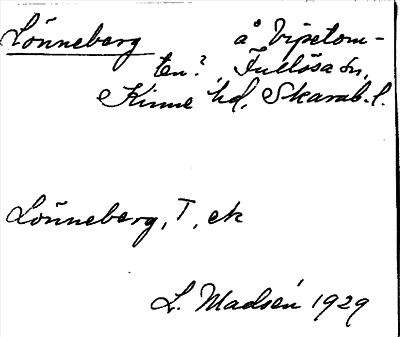 Lönneberg å Vipetom-
ten?, Fullösa sn,
Kinne hd, Skarab. l.
Lönneberg, T, ek
L. Madsén 1929